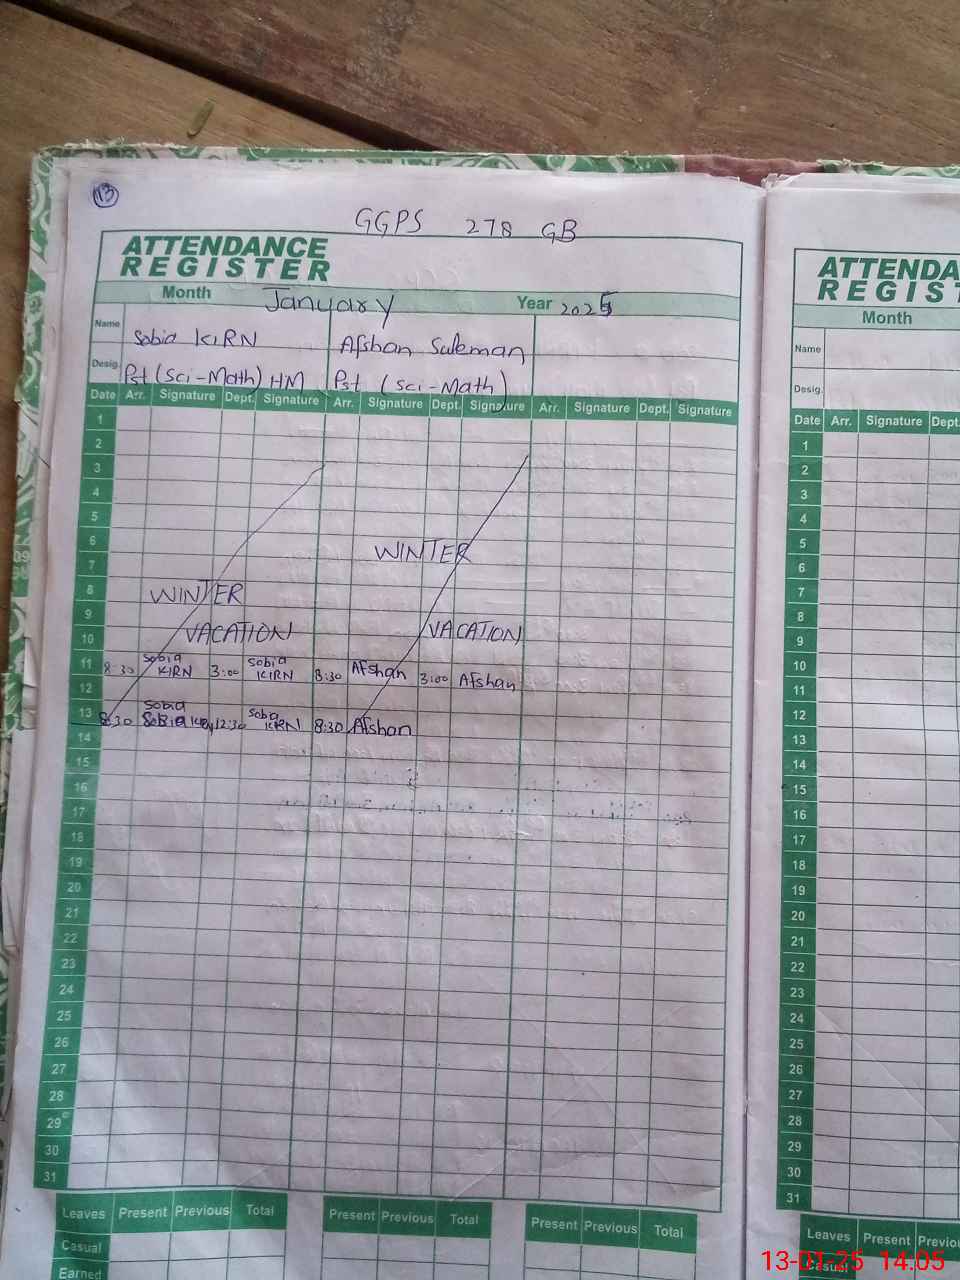 13
GGPS 278 GB
ATTENDANCE
REGISTER
Month January Year 2025
Name Sobia KIRN Afshan Suleman
Desig. Pst (Sci-Math) HM Pst (sci-Math)
Date Arr. Signature Dept. Signature Arr. Signature Dept. Signature Arr. Signature Dept. Signature
1
2
3
4
5
6 WINTER
7
8 WINTER
9
10 VACATION VACATION
11 8:30 Sobia KIRN 3:00 Sobia KIRN 8:30 Afshan 3:00 Afshan
12
13 8:30 Sobia 12:30 Sobia KIRN 8:30 Afshan
14
15
16
17
18
19
20
21
22
23
24
25
26
27
28
29
30
31
Leaves Present Previous Total Present Previous Total Present Previous Total
Casual
Earned
ATTENDA
REGIST
Month
Name
Desig.
Date Arr. Signature Dept.
1
2
3
4
5
6
7
8
9
10
11
12
13
14
15
16
17
18
19
20
21
22
23
24
25
26
27
28
29
30
31
Leaves Present Previou
Casual
13-01-25 14:05